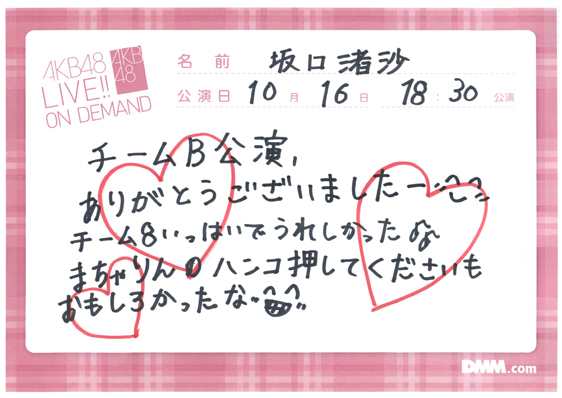 AKB48
LIVE!!
ON DEMAND
AKB
48
名前 坂口渚沙
公演日 10月16日 18:30公演
チームB公演,
ありがとうございましたー
チーム8いっぱいでうれしかった
まちゃりんのハンコ押してくださいも
おもしろかったな
DMM.com